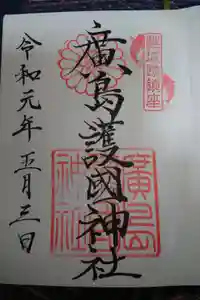 廣島護國神社
廣島
護國
神社
令和元年五月三日